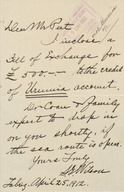 Dear Mr Peet
I inclose a
Bill of Exchange for
500.— to the credit
of Urumia account.
Dr Coan & family
expect to drop in
on you shortly, if
the sea route is open.
Yours truly
Wilson
April 25, 1912.